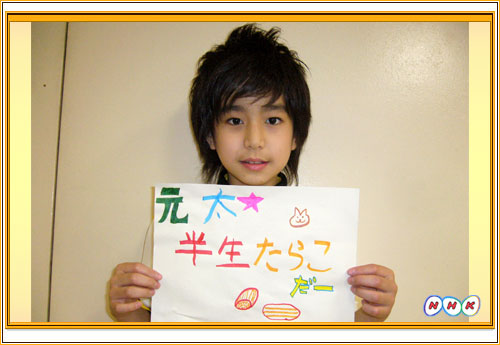 元太★
半生たらこ
だー
NHK